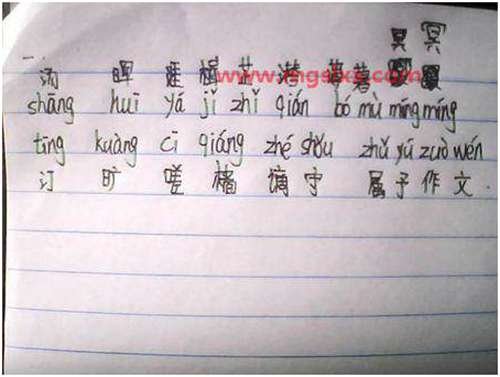 冥 冥
一.
汤 晖 楫 芷 潜 薄 暮
shāng huī yá jǐ zhǐ qián bó mù míng míng
tīng kuàng cī qiáng zhé shǒu zhǔ yú zuò wén
订 旷 嗟 樯 谪 守 属 予 作 文